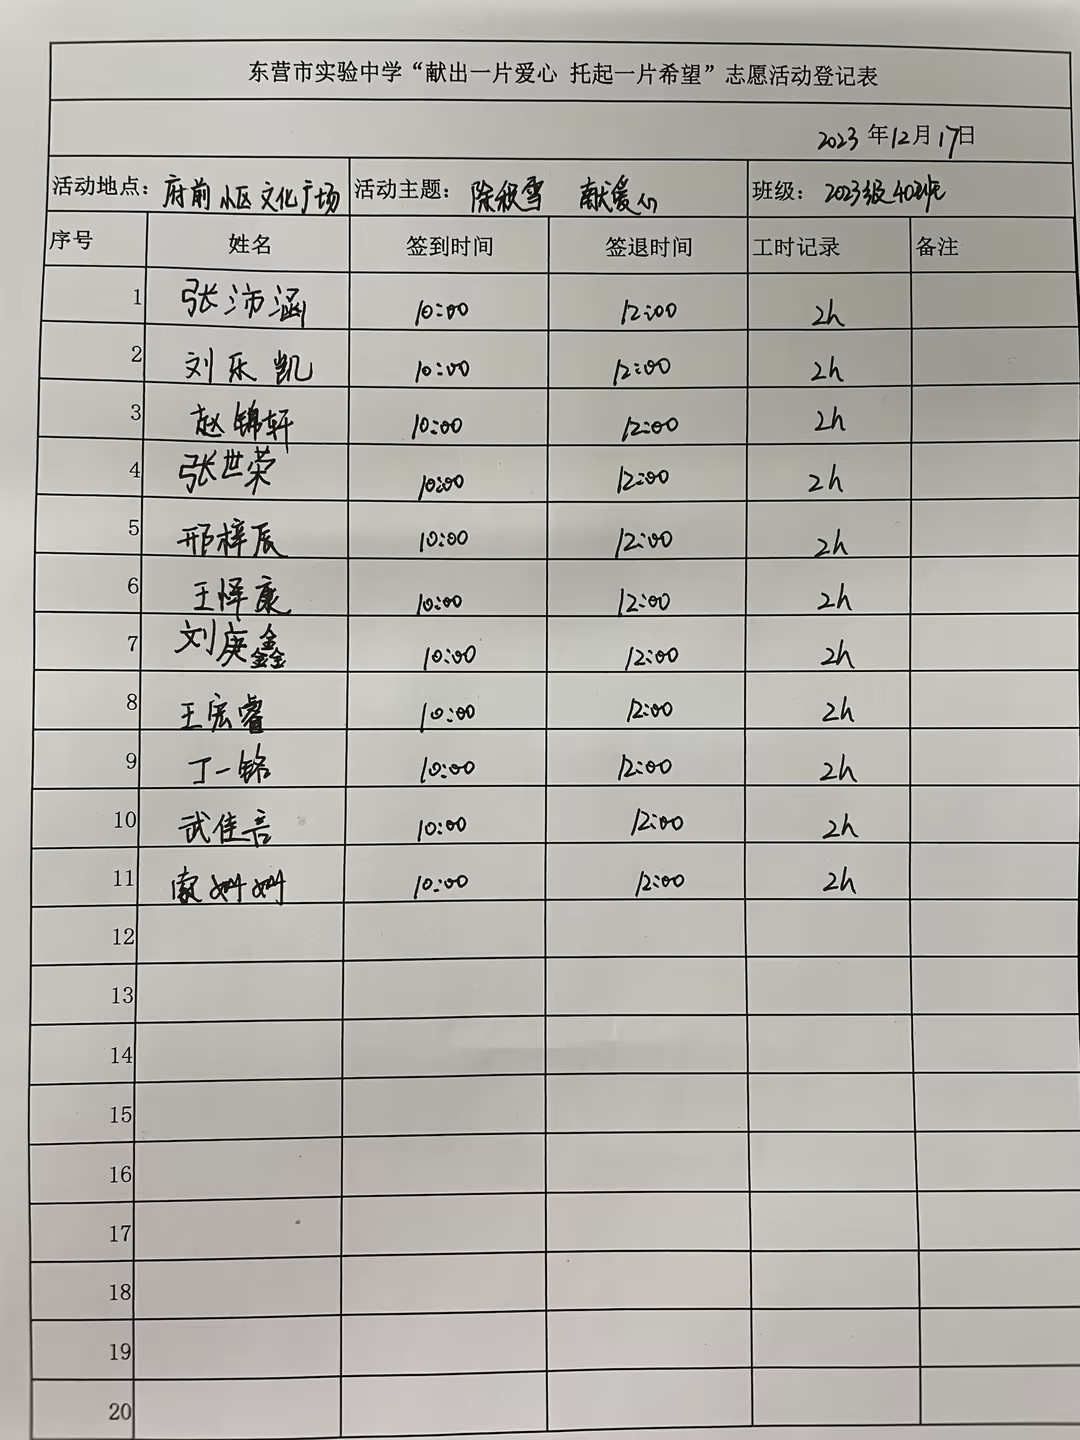 东营市实验中学“献出一片爱心 托起一片希望”志愿活动登记表
2023 年12月17日
活动地点：府前小区文化广场 活动主题：除积雪 献爱心 班级：2023级402班
序号 姓名 签到时间 签退时间 工时记录 备注
1 张沛涵 10:00 12:00 2h
2 刘乐凯 10:00 12:00 2h
3 赵锦轩 10:00 12:00 2h
4 张世荣 10:00 12:00 2h
5 邢梓辰 10:00 12:00 2h
6 王怿康 10:00 12:00 2h
7 刘庚鑫 10:00 12:00 2h
8 王宏睿 10:00 12:00 2h
9 丁一铭 10:00 12:00 2h
10 武佳言 10:00 12:00 2h
11 10:00 12:00 2h
12
13
14
15
16
17
18
19
20